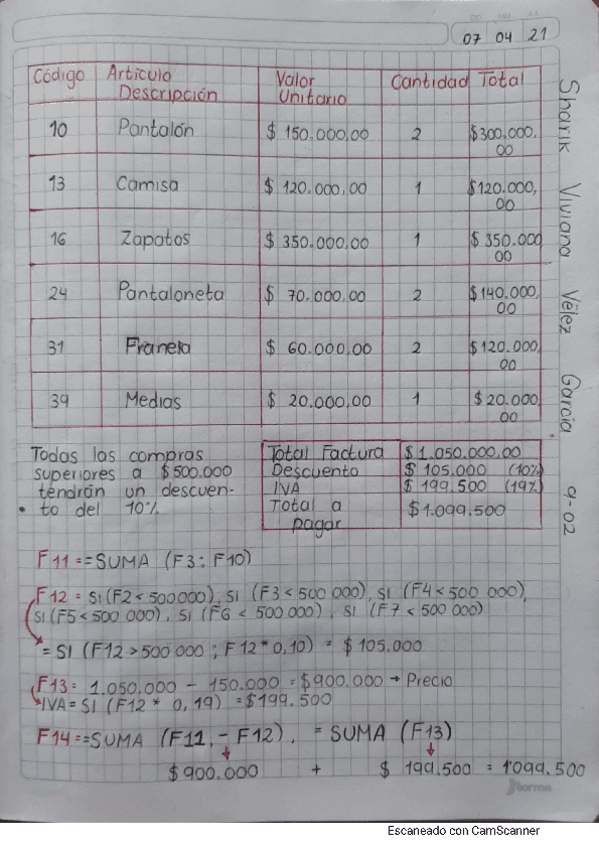 07 04 21
Código Artículo Descripción Valor Unitario Cantidad Total
10 Pantalón $ 150.000,00 2 $300,000,00
13 Camisa $ 120.000,00 1 $120.000,00
16 Zapatos $ 350.000,00 1 $ 350.000,00
24 Pantaloneta $ 70.000,00 2 $140.000,00
31 Franela $ 60.000,00 2 $120.000,00
39 Medias $ 20.000,00 1 $20.000,00
Sharik Viviana Vélez Garcia 9-02
Todas las compras
superiores a $500.000
tendrán un descuen-
to del 10%
Total Factura $1.050.000,00
Descuento $ 105.000 (10%)
IVA $ 199.500 (19%)
Total a pagar $1.099.500
F11==SUMA (F3:F10)
F12 = SI(F2<500000), SI (F3<500 000), SI (F4<500 000),
SI(F5<500 000), SI (F6 < 500 000), SI (F7 <500 000)
= SI (F12 >500 000 ; F12 * 0,10) = $ 105.000
F13= 1.050.000 - 150.000 = $900.000 → Precio
IVA= SI (F12 * 0,19) = $199.500
F14 ==SUMA (F11, - F12), = SUMA (F13)
$ 900.000 + $ 199.500 = 1'099.500
Norma
Escaneado con CamScanner